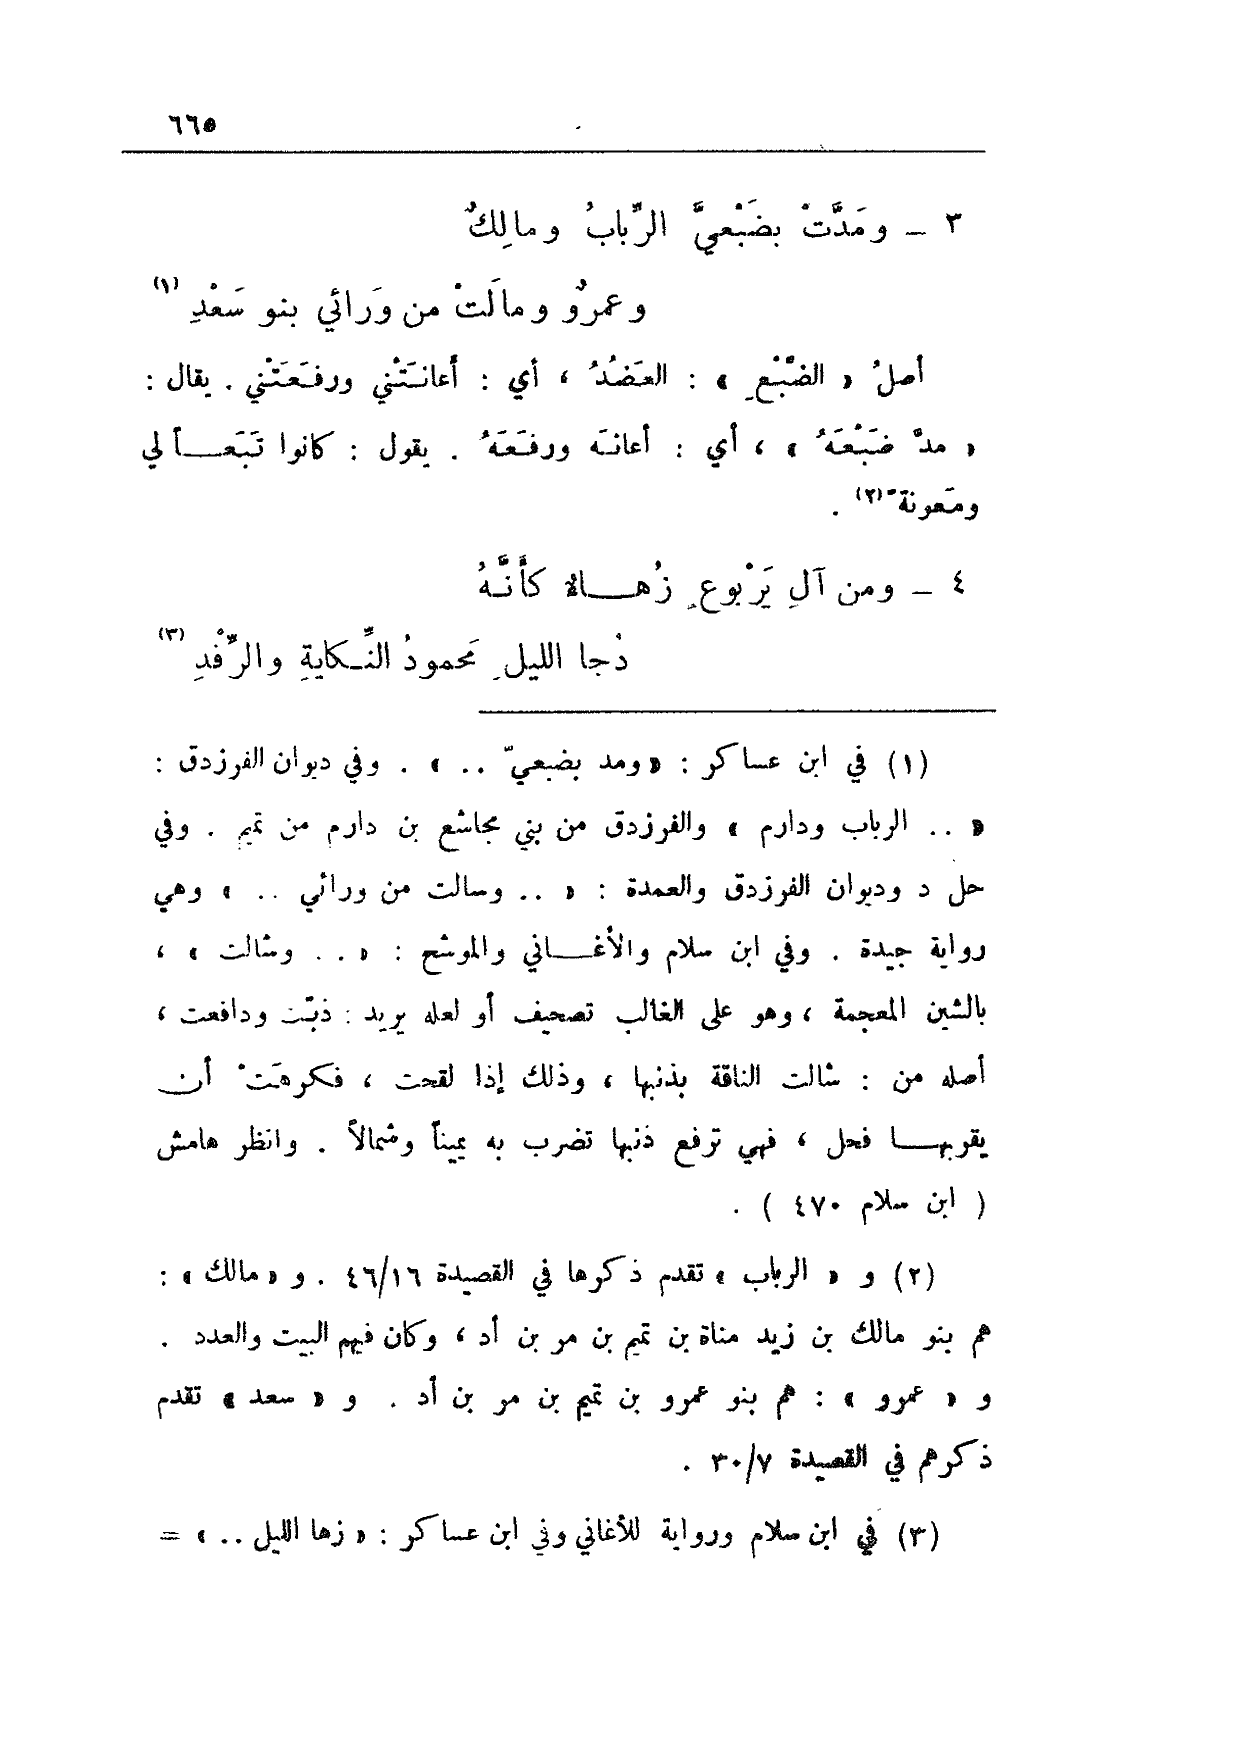 ٦٦٥
٣ ــ ومَدَّتْ بضَبْعيَّ الرِّبابُ ومالِكٌ
وعمرٌو ومالَتْ من وَرائي بنو سَعْدِ (١)
أصلُ « الضَّبْعِ » : العَضُدُ ، أي : أعانَتْني ورفَعَتْني . يقال :
« مدَّ ضَبْعَهُ » ، أي : أعانَه ورفَعَهُ . يقول : كانوا تَبَعـاً لي
ومَعونةً (٢) .
٤ ــ ومن آلِ يَرْبوعٍ زُهـاءٌ كأنَّهُ
دُجا الليلِ مَحمودُ النِّـكايةِ والرِّفْدِ (٣)
(١) في ابن عساكر : « ومد بضبعيّ .. » . وفي ديوان الفرزدق :
« .. الرباب ودارم » والفرزدق من بني مجاشع بن دارم من تميم . وفي
حل د وديوان الفرزدق والعمدة : « .. وسالت من ورائي .. » وهي
رواية جيدة . وفي ابن سلام والأغـاني والموشح : « .. وشالت » ،
بالشين المعجمة ، وهو على الغالب تصحيف أو لعله يريد : ذبّت ودافعت ،
أصله من : شالت الناقة بذنبها ، وذلك إذا لقحت ، فكرهَتْ أن
يقربهـا فحل ، فهي ترفع ذنبها تضرب به يميناً وشمالاً . وانظر هامش
( ابن سلام ٤٧٠ ) .
(٢) و « الرباب » تقدم ذكرها في القصيدة ٤٦/١٦ . و « مالك » :
هم بنو مالك بن زيد مناة بن تميم بن مر بن أد ، وكان فيهم البيت والعدد .
و « عمرو » : هم بنو عمرو بن تميم بن مر بن أد . و « سعد » تقدم
ذكرهم في القصيدة ٣٠/٧ .
(٣) في ابن سلام ورواية للأغاني وفي ابن عساكر : « زها الليل .. » =